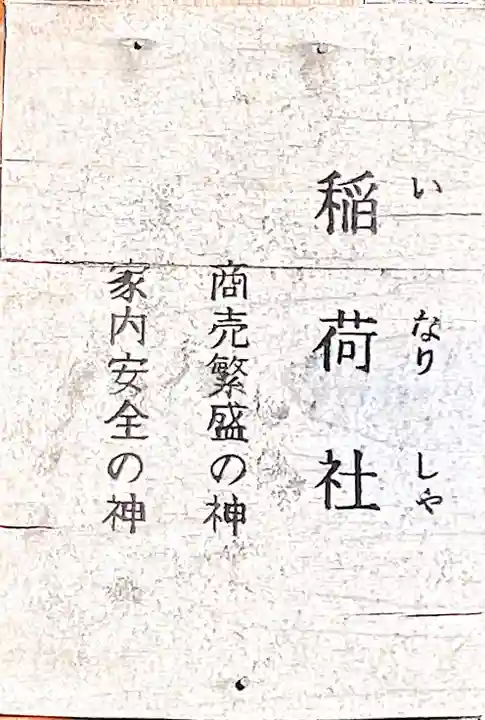 いなりしゃ
稲荷社
商売繁盛の神
家内安全の神